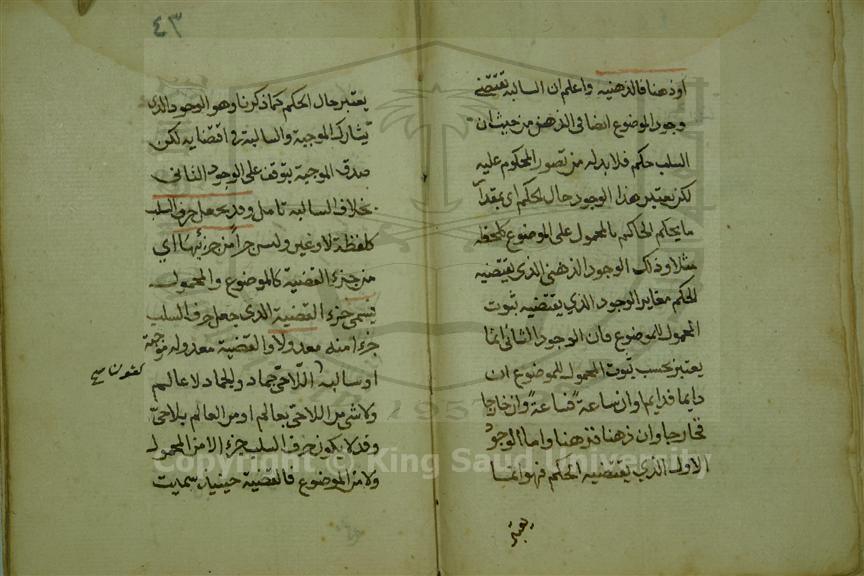 او ذهنا فالذهنيه واعلم ان السالبة تقتضي
وجود الموضوع ايضا في الذهن من حيث ان
السلب حكم فلا بد له من تصور المحكوم عليه
لكن يعتبر هذا الوجود حال الحكم اي بمقدار
ما يحكم الحاكم بالمحمول على الموضوع كلحظه
مثلا وذلك الوجود الذهني الذي يقتضيه
الحكم مغاير الوجود الذي يقتضيه ثبوت
المحمول للموضوع فان الوجود الثاني انما
يعتبر بحسب ثبوت المحمول للموضوع ان
دايما فدايما وان ساعة فساعة وان خارجا
فخارجا وان ذهنا فذهنا واما الوجود
الاول الذي يقتضيه الحكم فهو انما
يعتبر
٤٣
يعتبر حال الحكم كما ذكرنا وهو الوجود الذي
تشارك الموجبة والسالبة في اقتضايه لكن
صدق الموجبة يتوقف على الوجود الثاني
بخلاف السالبه تامل وقد يجعل حرف السلب
كلفظة لا وغير وليس جزأ من جزئيها اي
من جزء القضية كالموضوع والمحمول
تسمى جزء القضية الذي جعل حرف السلب
جزءا منه معدولا والقضية معدوله موجبة
او سالبة اللاحي جماد والجماد لا عالم
ولا شي من اللاحي بعالم او من العالم بلاحي
وقد لا يكون حرف السلب جزء الا من المحمول
ولا من الموضوع فالقضية حينيذ سميت
Copyright © King Saud University
1957